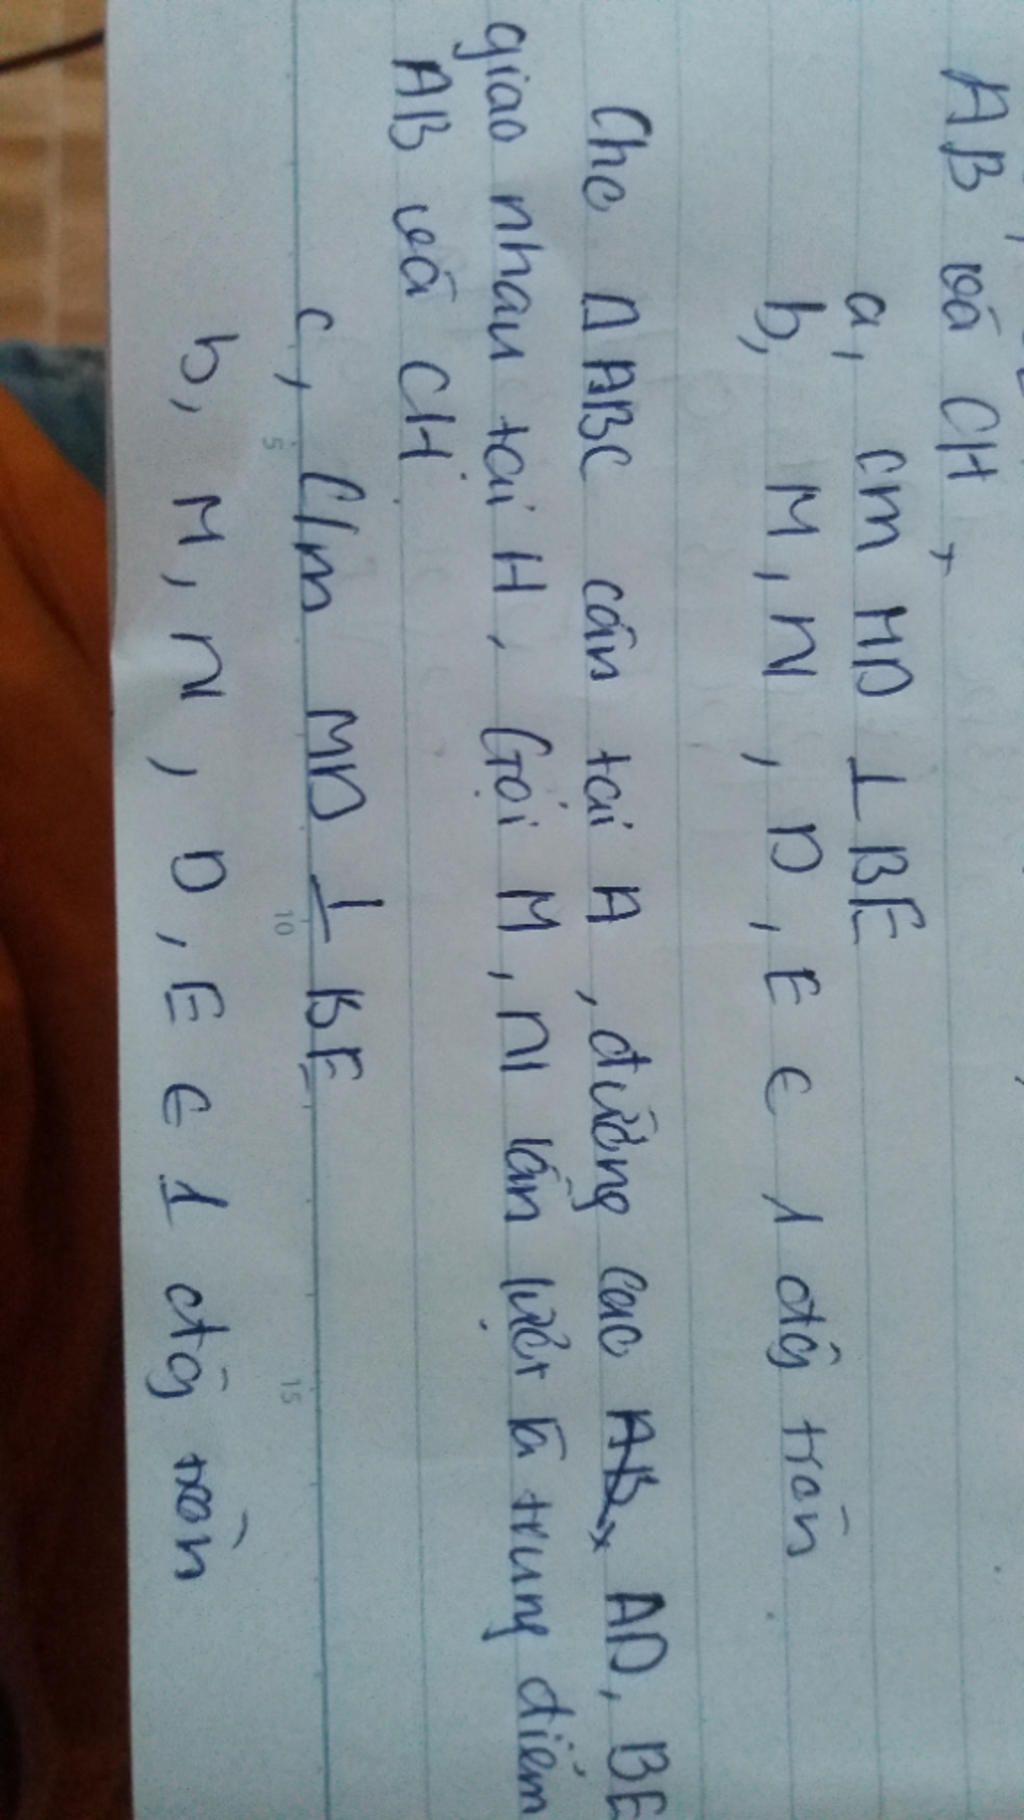 AB và CH
a, cm MD ⊥ BE
b, M, N, D, E ∈ 1 đg tròn
Cho Δ ABC cân tại A, đường cao AD, BE
giao nhau tại H, Gọi M, N lần lượt là trung điểm
AB và CH
c, C/m MD ⊥ BE
b, M, N, D, E ∈ 1 đg tròn
5
10
15